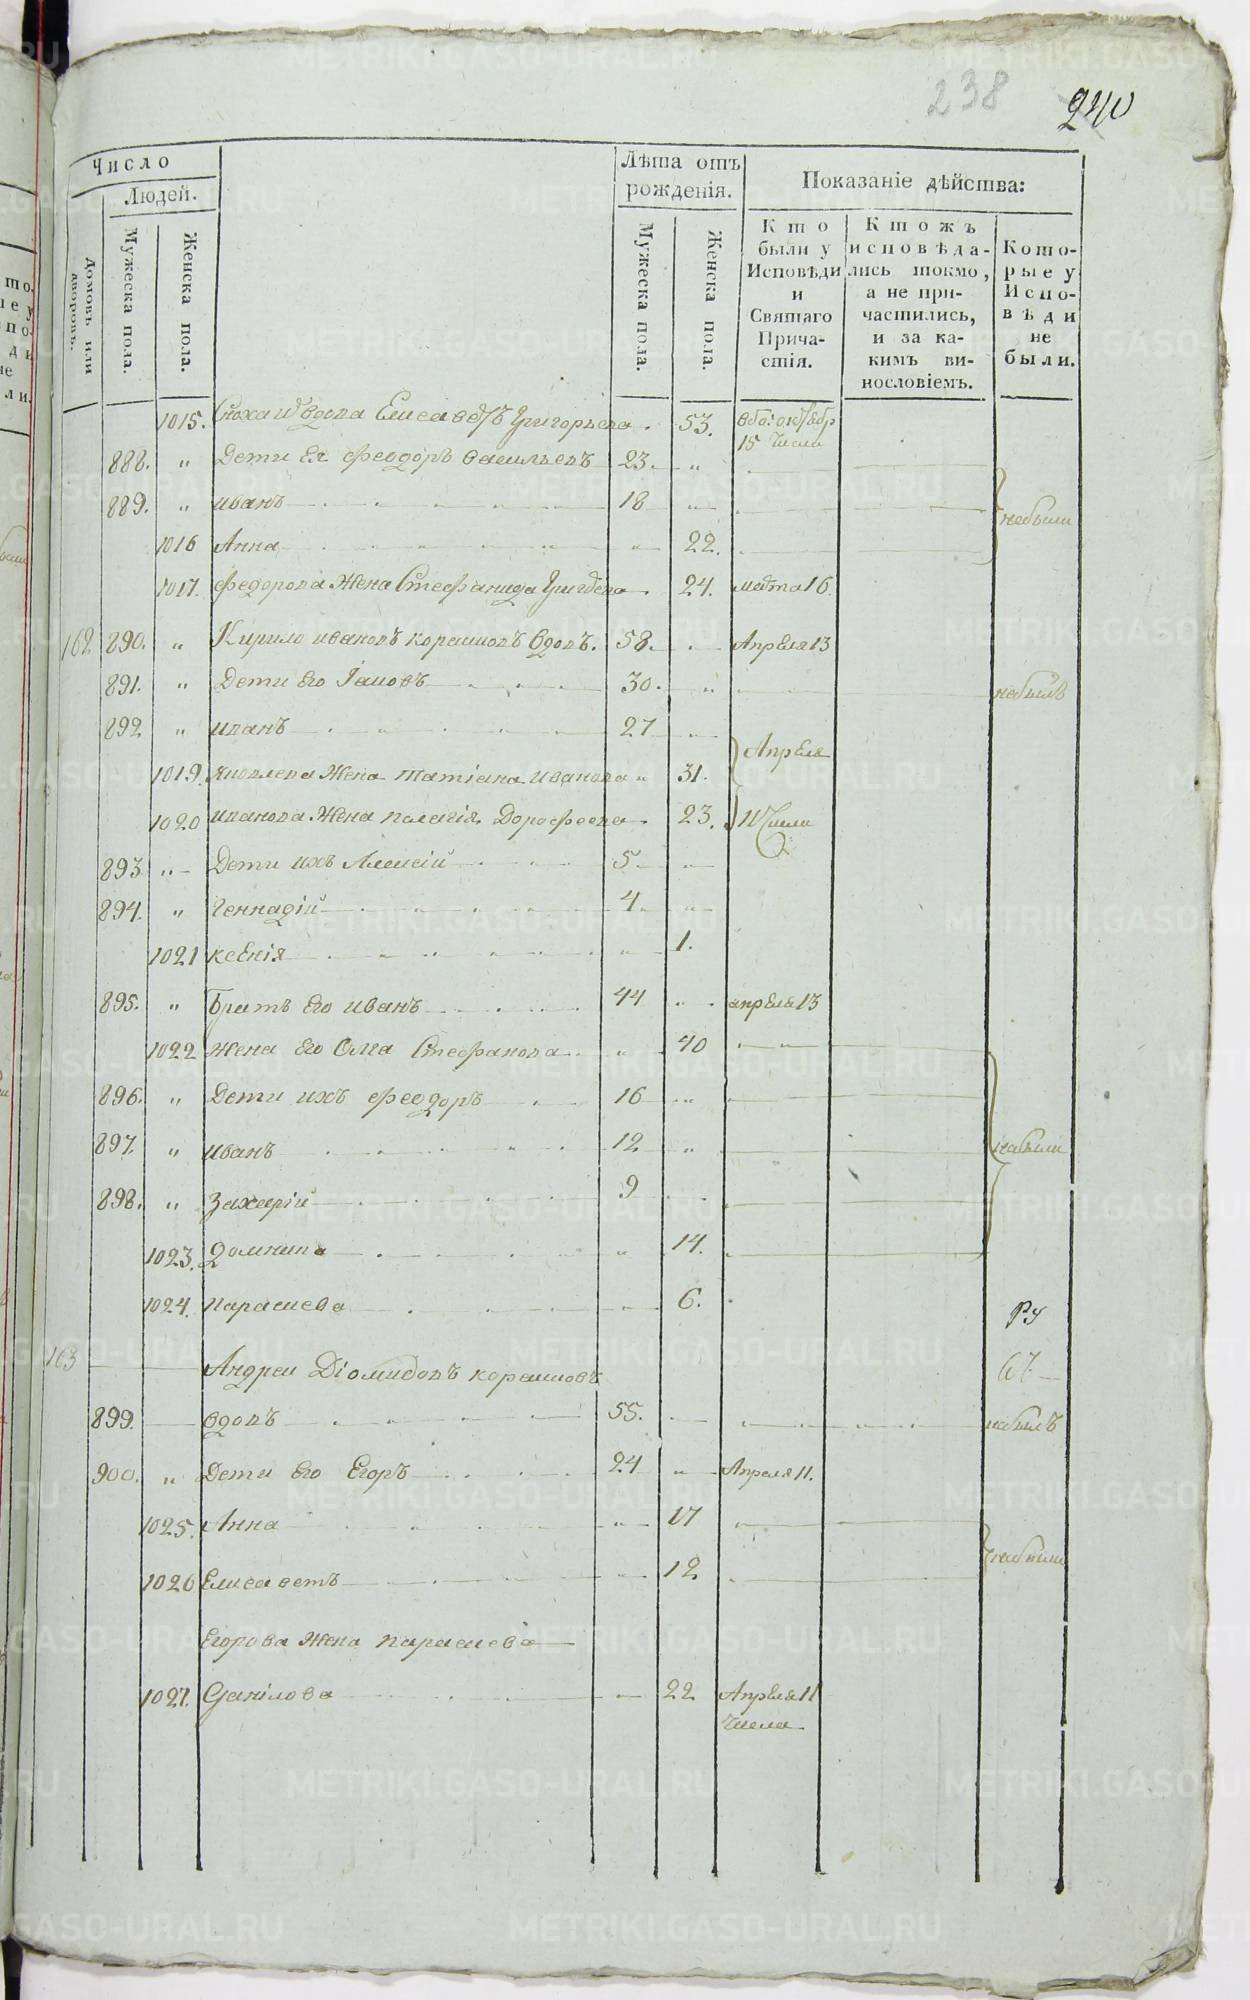 238 240
Число
Людей.
Домовъ или дворовъ.
Мужеска пола.
Женска пола.
Лѣта отъ рожденія.
Мужеска пола.
Женска пола.
Показаніе дѣйства:
Кто были у Исповѣди и Святаго Причастія.
Ктожъ исповѣдались токмо, а не причастились, и за какимъ винословіемъ.
Которые у Исповѣди не были.
1015. Сноха вдова Елисаветъ Григорьева 53. октябр 15 числа
888. " Дети Ея Феодоръ Васильевъ 23. "
889. " иванъ 18 " небыли
1016 Анна " 22.
1017. Федорова Жена Стефанида 24. марта 16
162. 890. " Кирило ивановъ корашовъ вдовъ. 58. Апреля 13
891. " Дети Его Іаковъ 30. " небылъ
892 " иванъ 27 Апреля
1019. Яковлева Жена татіана Иванова " 31.
1020 иванова Жена палагія Дорофеева 23. 11 Числа
893 " Дети ихъ Алексій 5
894. " Геннадій 4 "
1021 ксенія " 1.
895. " Братъ Его иванъ 44 " апреля 13
1022 Жена Его Олга Стефанова " 40 "
896. " Дети ихъ феодоръ 16 "
897. " иванъ 12 " небыли
898. " Захарій 9
1023. Домнина " 14.
1024. параскева " 6.
163 Андреи Діомидовъ корашовъ
899. вдовъ 55. небылъ
900. " Дети Его Егоръ 24 " Апреля 11.
1025. Анна " 17
1026 Елисаветъ " 12 небыли
Егорова Жена параскева
1027. Данілова 22 Апреля 11
числа
METRIKI.GASO-URAL.RU